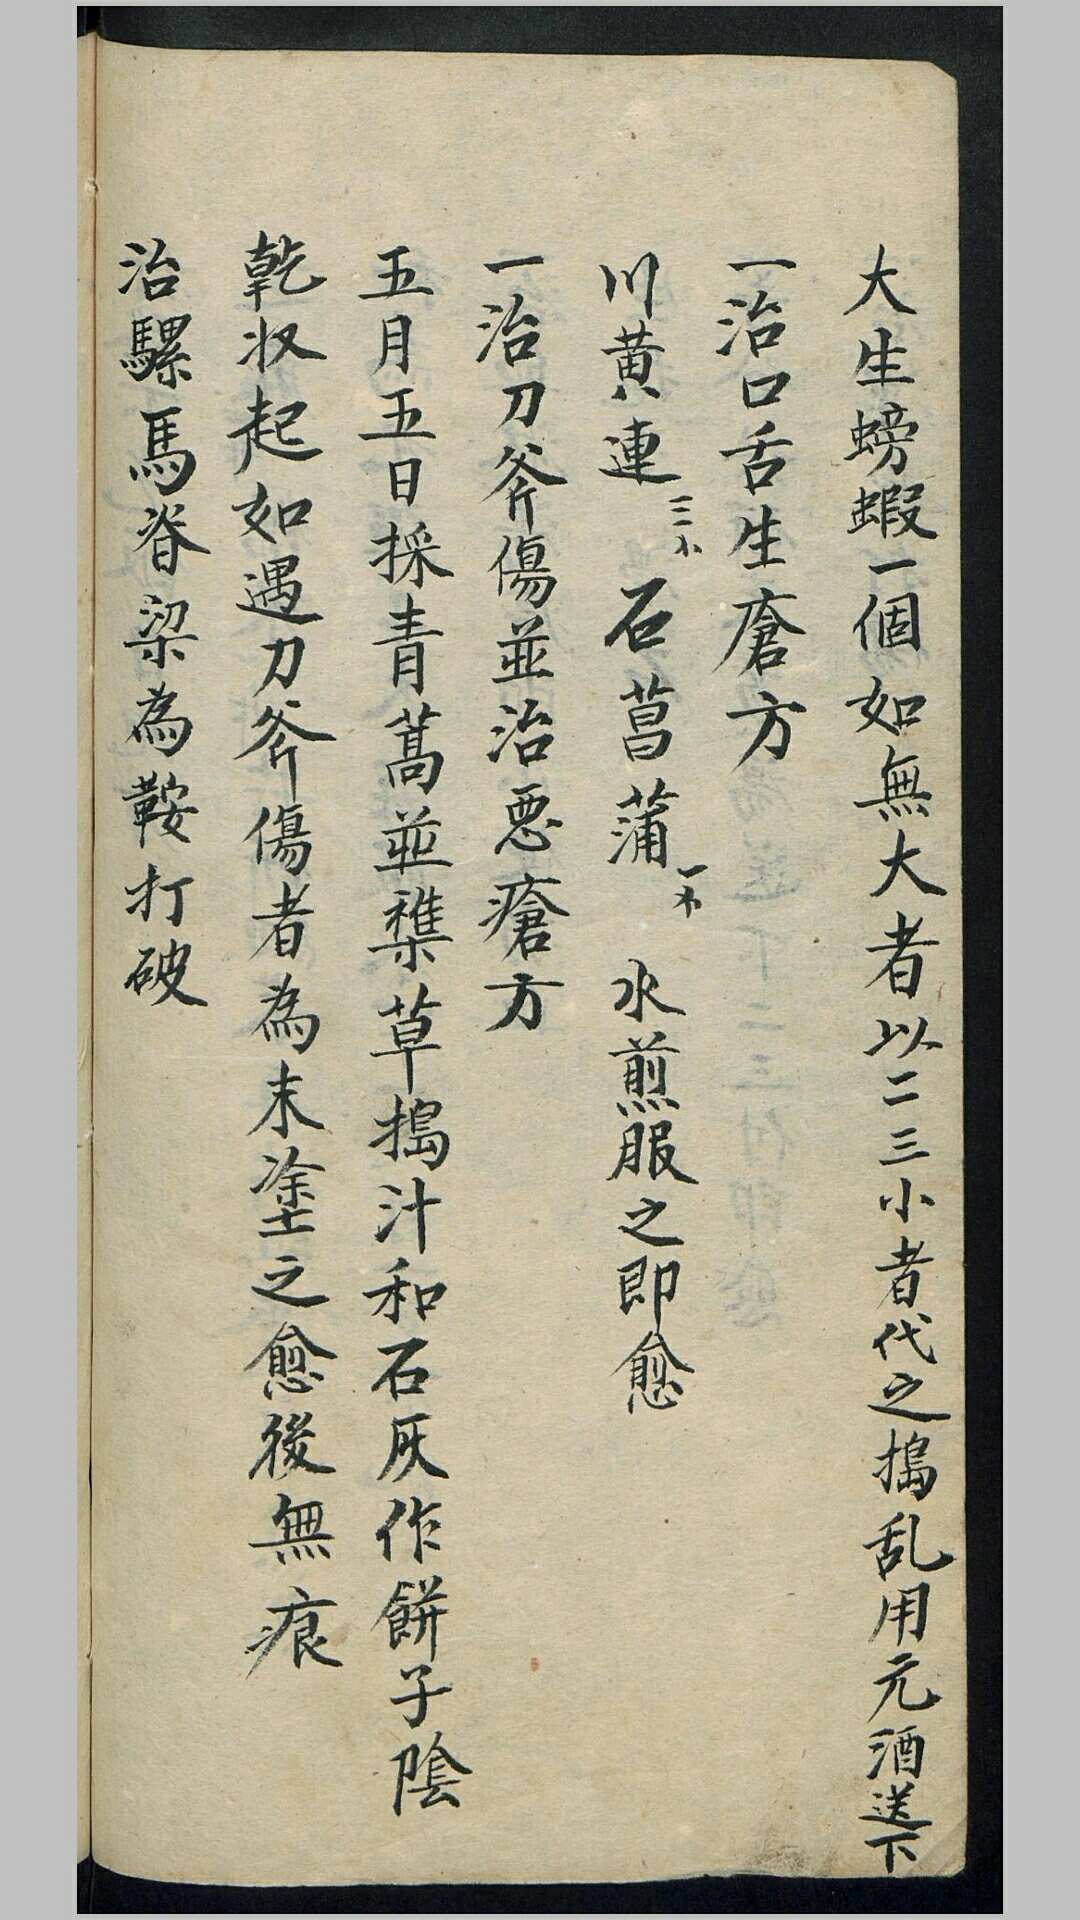 大生螃蝦一個如無大者以二三小者代之搗乱用元酒送下
一治口舌生瘡方
川黄連 石菖蒲 水煎服之即愈
一治刀斧傷並治悪瘡方
五月五日採青蒿並 草搗汁和石灰作餅子陰
乾收起如遇刀斧傷者為末塗之愈後無痕
治騾馬脊梁為鞍打破